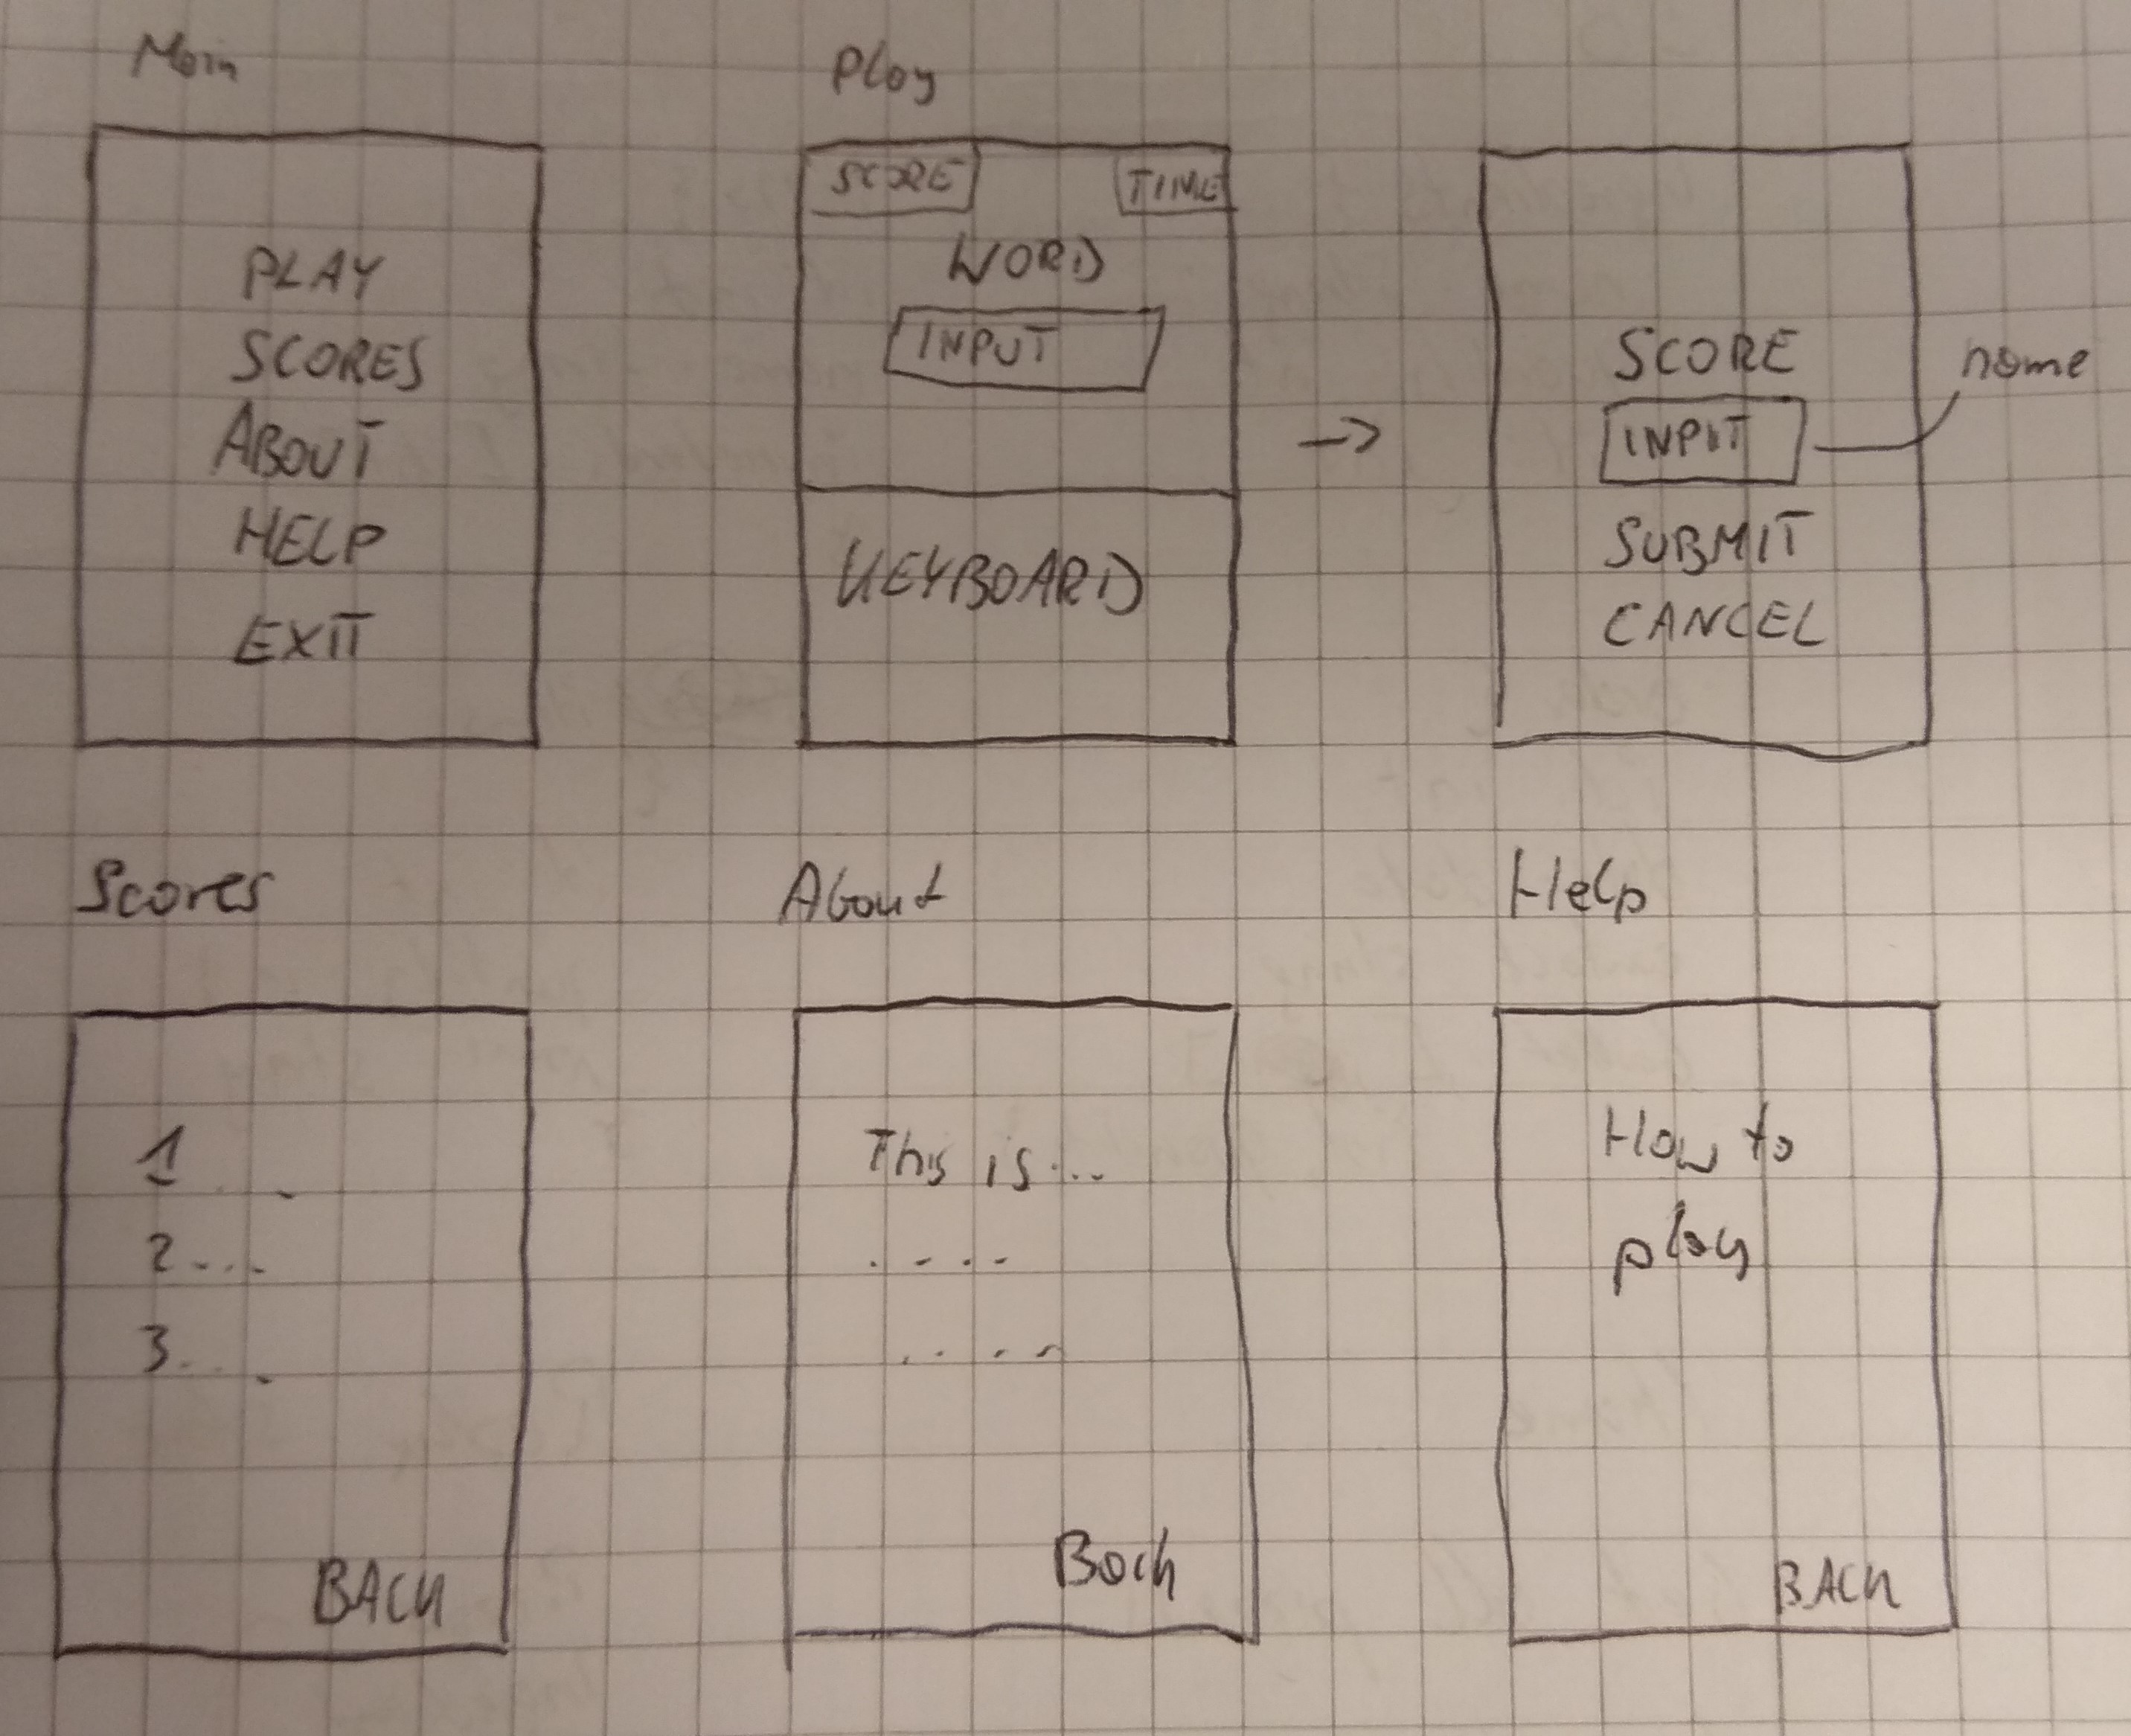 Main
PLAY
SCORES
ABOUT
HELP
EXIT
Play
SCORE
TIME
WORD
INPUT
KEYBOARD
->
SCORE
INPUT
name
SUBMIT
CANCEL
Scores
1 . . .
2 . . .
3 . . .
BACK
About
This is ...
. . . .
. . . .
Back
Help
How to
play
BACK